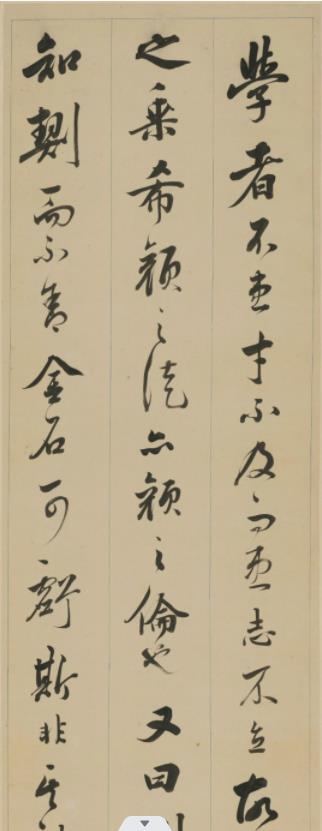 學者不患才不及而患志不立故
之乘希顏之徒亦顏之倫也又曰
知契而不舍金石可虧斯非其